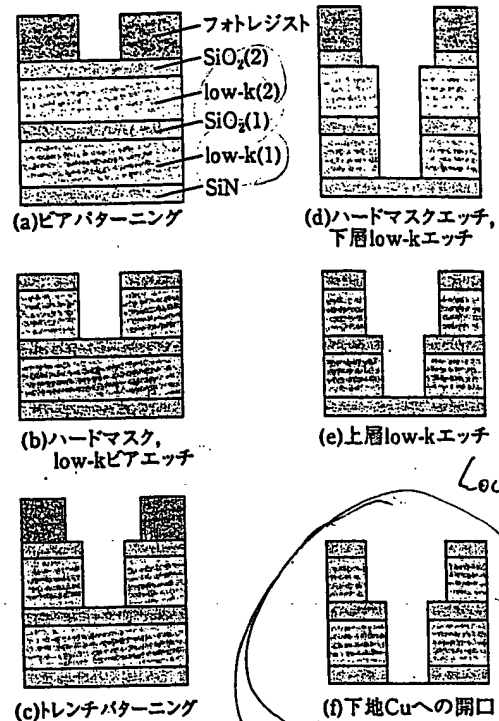 フォトレジスト
SiO₂(2)
low-k(2)
SiO₂(1)
low-k(1)
SiN
(a)ビアパターニング
(b)ハードマスク,
low-kビアエッチ
(c)トレンチパターニング
(d)ハードマスクエッチ,
下層low-kエッチ
(e)上層low-kエッチ
(f)下地Cuへの開口